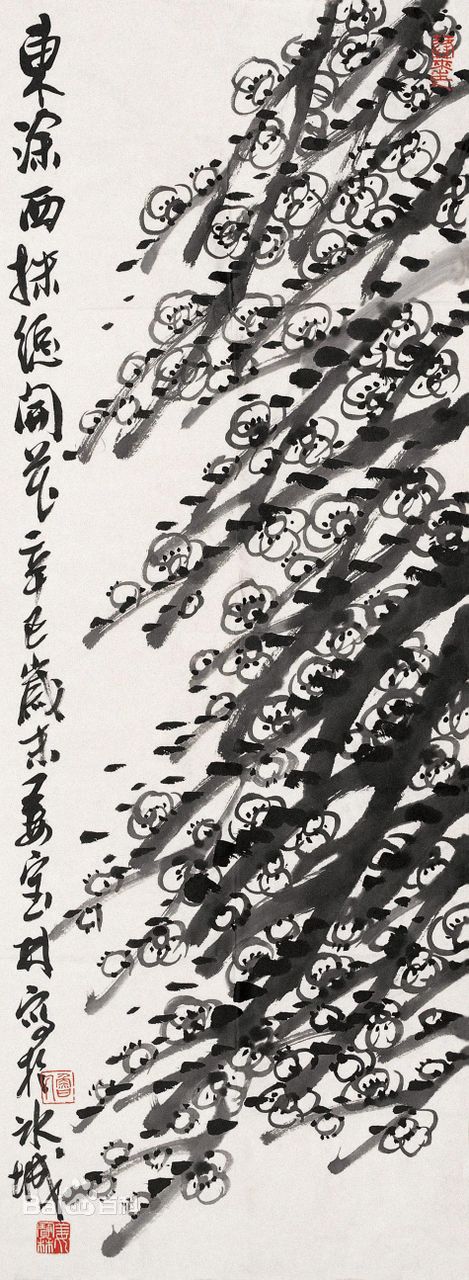 東涂西抹總開花辛巳歲末姜宝林寫於冰城
Bai百科